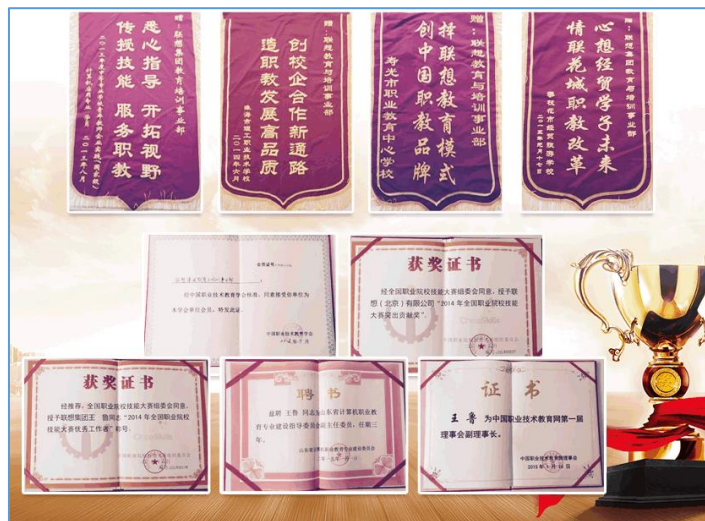 赠：联想集团教育培训事业部
悉心指导 开拓视野
传授技能 服务职教
二〇一三年八月
赠：联想教育与培训事业部
创校企合作新通路
造职教发展高品质
珠海市理工职业技术学校
二〇一四年六月
赠：联想教育与培训事业部
择联想教育模式
创中国职教品牌
寿光市职业教育中心学校
赠：联想集团教育与培训事业部
心想经贸学子未来
情联花城职教改革
攀枝花市经贸旅游学校
经中国职业技术教育学会核准，同意接受你单位为
本学会单位会员，特发此证。
中国职业技术教育学会
获奖证书
经全国职业院校技能大赛组委会同意，授予联
想（北京）有限公司“2014年全国职业院校技能
大赛突出贡献奖”。
获奖证书
经推荐，全国职业院校技能大赛组委会同意，
授予联想集团王 鲁同志“2014年全国职业院校
技能大赛优秀工作者”称号。
聘书
兹聘 王鲁 同志为山东省计算机职业教
育专业建设指导委员会副主任委员，任期三
年。
证书
王鲁 为中国职业技术教育网第一届
理事会副理事长。
中国职业技术教育网理事会